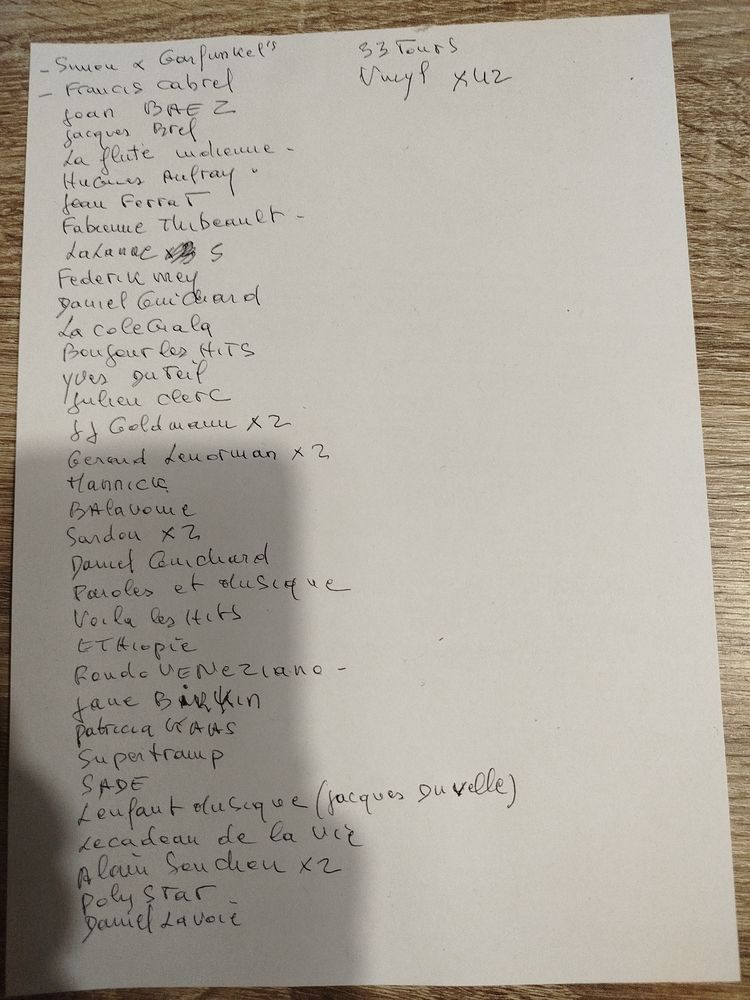 - Simon & Garfunkel's
- Francis Cabrel
Joan BAEZ
Jacques Brel
La flute indienne -
Hugues Aufray
Jean Ferrat
Fabienne Thibeault -
LaLanne S
Federik mey
Daniel Guichard
La coleGiala
Boujour les HiTS
Yves DuTeil
Julien clerc
JJ Goldmann x2
Gerard Lenorman x2
Mannick
BAlavoine
Sardou x2
Daniel Guichard
Paroles et Musique
Voila les Hits
ETHiopie
Rondo VENeZiano -
Jane BiRKin
patricia KAAS
Supertramp
SADE
L'enfant Musique (Jacques Duvelle)
Le cadeau de la vie
Alain Souchon x2
Poly STAR
Daniel Lavoie
33 Tours
Vinyl x42